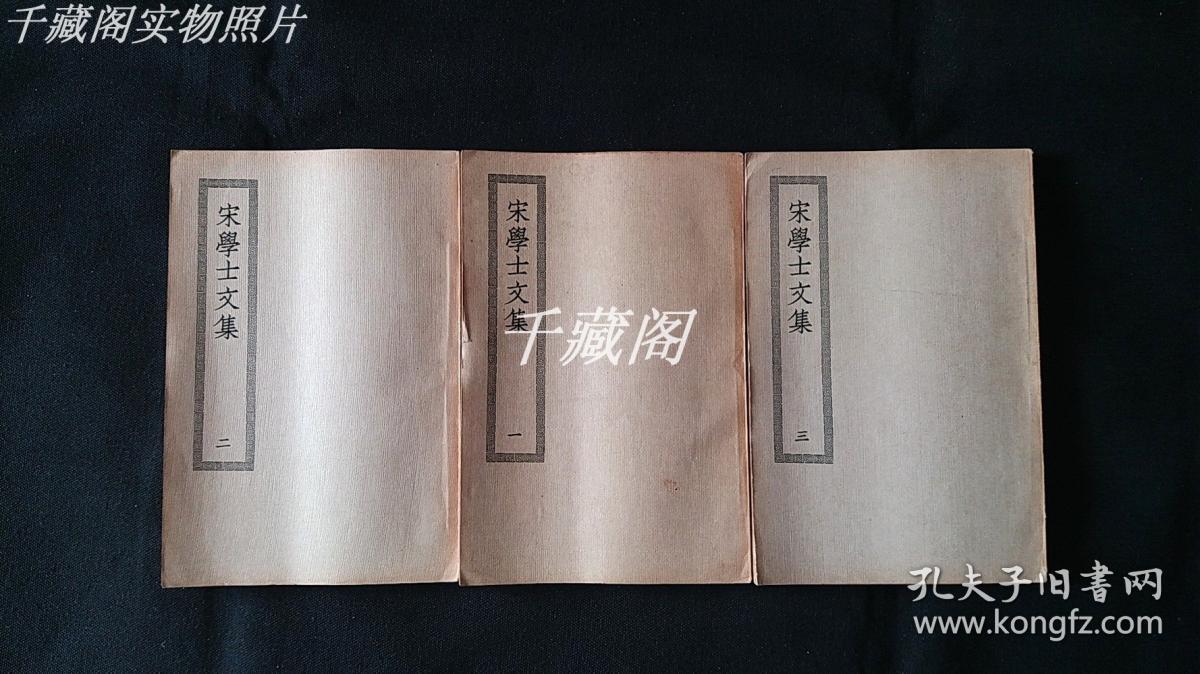 千藏阁实物照片
宋學士文集
二
宋學士文集
一
宋學士文集
三
千藏阁
孔夫子旧书网
www.kongfz.com